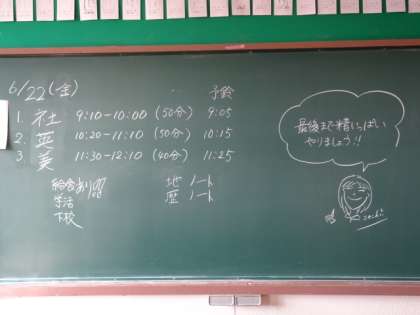 6/22(金)
予鈴
1. 社 9:10-10:00 (50分) 9:05
2. 英 10:20-11:10 (50分) 10:15
3 美 11:30-12:10 (40分) 11:25
給食あり
学活
下校
地 ノート
歴 ノート
最後まで精いっぱい
やりましょう!!